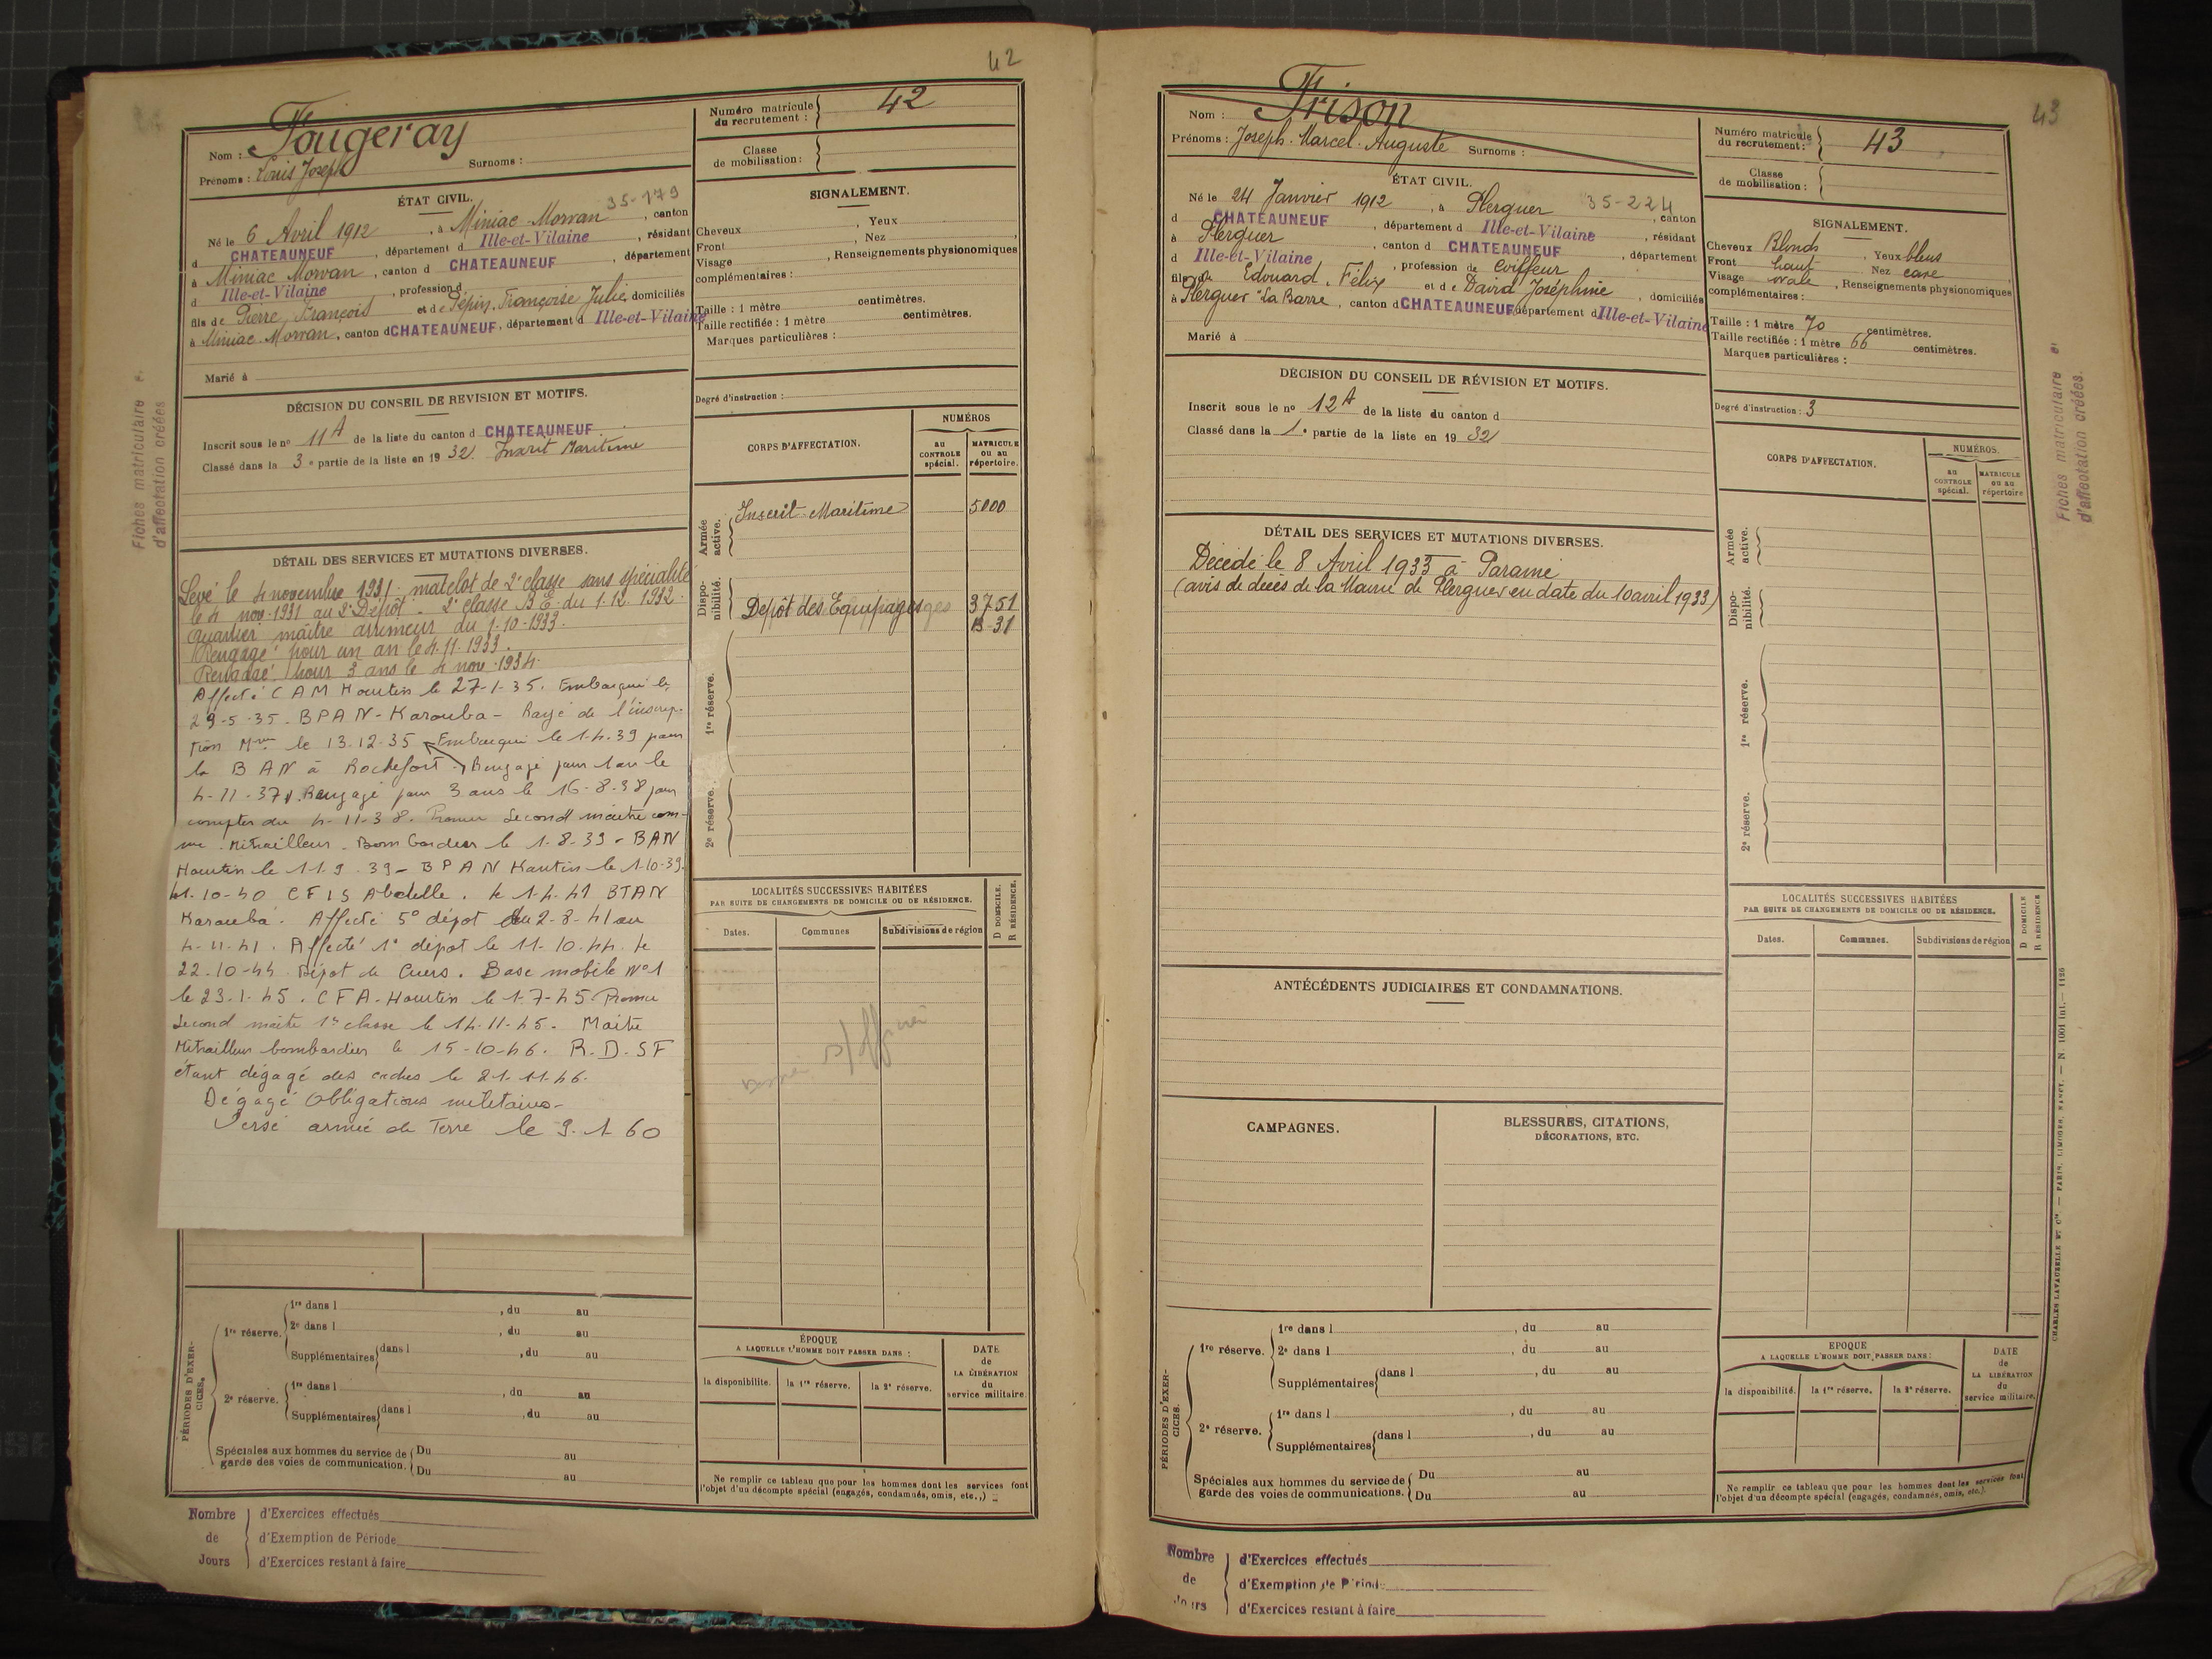 42
Nom : Fougeray
Prénoms : Louis Joseph Surnoms :
Numéro matricule du recrutement : 42
Classe de mobilisation :
ÉTAT CIVIL.
35-179
Né le 6 Avril 1912, à Miniac-Morvan, canton
d CHATEAUNEUF, département d Ille-et-Vilaine, résidant
à Miniac Morvan, canton d CHATEAUNEUF, département
d Ille-et-Vilaine, profession d
fils de Pierre, François et de Pépin, Françoise Julie, domiciliés
à Miniac-Morvan, canton d CHATEAUNEUF, département d Ille-et-Vilaine
Marié à
SIGNALEMENT.
Cheveux , Yeux
Front , Nez
Visage , Renseignements physionomiques
complémentaires :
Taille : 1 mètre centimètres.
Taille rectifiée : 1 mètre centimètres.
Marques particulières :
Degré d'instruction :
DÉCISION DU CONSEIL DE REVISION ET MOTIFS.
Inscrit sous le n° 11 A de la liste du canton d CHATEAUNEUF
Classé dans la 3e partie de la liste en 1932. Inscrit Maritime
Fiches matriculaire et
d'affectation créées
DÉTAIL DES SERVICES ET MUTATIONS DIVERSES.
Levé le 4 novembre 1931, matelot de 2e classe sans spécialité
le 4 nov. 1931 au 2e Dépôt. 2e classe B.E. du 1.12.1932.
Quartier maître arrimeur du 1-10-1933.
Rengagé pour un an le 4.11.1933.
Rengagé pour 3 ans le 4 nov. 1934.
Affecté CAM Hourtin le 27-1-35. Embarqué le
29-5-35. BPAN-Karouba- Rayé de l'inscrip-
tion Mme le 13-12-35 Embarqué le 1-4-39 pour
la BAN à Rochefort. Rengagé pour 1 an le
4-11-37. Rengagé pour 3 ans le 16-8-38 pour
compter du 4-11-38. Promu Second maître com-
me Mitrailleur-Bombardier le 1-8-39 - BAN
Hourtin le 11.9.39 - BPAN Hourtin le 1-10-39.
1-10-40 CFIS Abdelle. le 1-4-41 BTAN
Karouba. Affecté 5e dépot du 2-8-41 au
4-11-41. Affecté 1e dépot le 11-10-44. le
22-10-44 Dépot de Cuers. Base mobile N°1
le 23-1-45. CFA-Hourtin le 1-7-45. Promu
Second maître 1re classe le 14-11-45. Maitre
Mitrailleur bombardier le 15-10-46. R.D.SF
étant dégagé des cadres le 21-11-46.
Dégagé Obligations militaires-
Versé armée de Terre le 9.1.60
CORPS D'AFFECTATION.
NUMÉROS
AU CONTROLE spécial.
MATRICULE ou au répertoire.
Armée active.
Inscrit Maritime 5000
Dispo-nibilité.
Dépôt des Equipages 3751
B-31
1re réserve.
2e réserve.
LOCALITÉS SUCCESSIVES HABITÉES
PAR SUITE DE CHANGEMENTS DE DOMICILE OU DE RÉSIDENCE.
Dates. Communes Subdivisions de région D DOMICILE. R RÉSIDENCE.
PÉRIODES D'EXER-CICES.
1re réserve. 1re dans l , du au
2e dans l , du au
Supplémentaires dans l , du au
2e réserve. 1re dans l , du au
Supplémentaires dans l , du au
Spéciales aux hommes du service de garde des voies de communication. Du au
Du au
ÉPOQUE
A LAQUELLE L'HOMME DOIT PASSER DANS :
la disponibilité. la 1re réserve. la 2e réserve.
DATE de LA LIBÉRATION du service militaire.
Ne remplir ce tableau que pour les hommes dont les services font
l'objet d'un décompte spécial (engagés, condamnés, omis, etc.,)
Nombre de Jours
d'Exercices effectués
d'Exemption de Période
d'Exercices restant à faire
43
Nom : Frison
Prénoms : Joseph-Marcel-Auguste Surnoms :
Numéro matricule du recrutement : 43
Classe de mobilisation :
ÉTAT CIVIL.
Né le 24 Janvier 1912, à Plerguer 35-224, canton
d CHATEAUNEUF, département d Ille-et-Vilaine, résidant
à Plerguer, canton d CHATEAUNEUF, département
d Ille-et-Vilaine, profession de Coiffeur
fils de Edouard, Félix et de David Joséphine, domiciliés
à Plerguer "La Barre, canton d CHATEAUNEUF département d Ille-et-Vilaine
Marié à
SIGNALEMENT.
Cheveux Blonds, Yeux bleus
Front haut, Nez cave
Visage ovale, Renseignements physionomiques
complémentaires :
Taille : 1 mètre 70 centimètres.
Taille rectifiée : 1 mètre 66 centimètres.
Marques particulières :
Degré d'instruction : 3
DÉCISION DU CONSEIL DE RÉVISION ET MOTIFS.
Inscrit sous le n° 12 A de la liste du canton d
Classé dans la 1e partie de la liste en 1932
DÉTAIL DES SERVICES ET MUTATIONS DIVERSES.
Décédé le 8 Avril 1933 à Paramé
(avis de décès de la Mairie de Plerguer en date du 10 avril 1933)
Fiches matriculaire et
d'affectation créées.
CORPS D'AFFECTATION.
NUMÉROS.
au CONTROLE spécial.
MATRICULE ou au répertoire
Armée active.
Dispo-nibilité.
1re réserve.
2e réserve.
LOCALITÉS SUCCESSIVES HABITÉES
PAR SUITE DE CHANGEMENTS DE DOMICILE OU DE RÉSIDENCE.
Dates. Communes. Subdivisions de région D DOMICILE R RÉSIDENCE.
ANTÉCÉDENTS JUDICIAIRES ET CONDAMNATIONS.
CAMPAGNES.
BLESSURES, CITATIONS,
DÉCORATIONS, ETC.
PÉRIODES D'EXER-CICES.
1re réserve. 1re dans l , du au
2e dans l , du au
Supplémentaires dans l , du au
2e réserve. 1re dans l , du au
Supplémentaires dans l , du au
Spéciales aux hommes du service de garde des voies de communications. Du au
Du au
EPOQUE
A LAQUELLE L'HOMME DOIT PASSER DANS :
la disponibilité. la 1re réserve. la 2e réserve.
DATE de LA LIBÉRATION du service militaire.
Ne remplir ce tableau que pour les hommes dont les services font
l'objet d'un décompte spécial (engagés, condamnés, omis, etc.).
CHARLES LAVAUZELLE ET Cie. — PARIS, LIMOGES, NANCY. — N. 1001 int. — 1126
Nombre de Jours
d'Exercices effectués
d'Exemption de Période
d'Exercices restant à faire